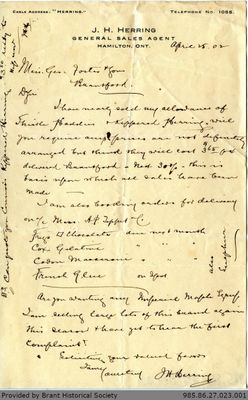 CABLE ADDRESS: "HERRING."
TELEPHONE NO. 1055.
J. H. HERRING
GENERAL SALES AGENT
HAMILTON, ONT.
April 25. 02
Mess. Geo. Foster & Son
Brantford.
I have nearly sold my allowance of
Thistle Haddies & Kippered Herring. Will
you require any, prices are not definitely
arranged but think they will cost
delivered Brantford - Net 30/- this is
basis upon which all sales have been
made
I am also booking orders for delivery
of Mess. A. P. Tippet & C
Frys D Chocolate due next month
Cox Gelatine
Codou Macaroni
French Glue on Spot
also
Are you wanting any Maple Syrup
I am selling large lots of this brand again
this season & have yet to hear the first
Complaint.
Soliciting your valued favors
I am
J H Herring
Provided by Brant Historical Society
985.86.27.023.001